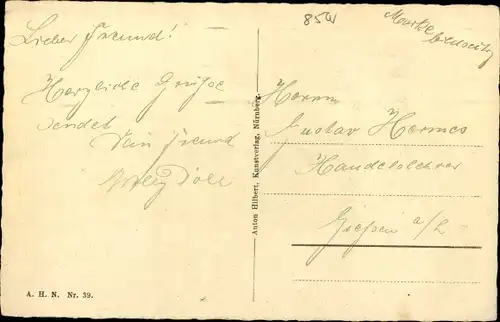 85W
Marke
Lieber Freund!
Herzliche Grüße
sendet
Dein Freund
Willy
Herrn
Gustav Hermes
Handelslehrer
Gießen a/L
Anton Hilbert, Kunstverlag, Nürnberg.
A. H. N. Nr. 39.